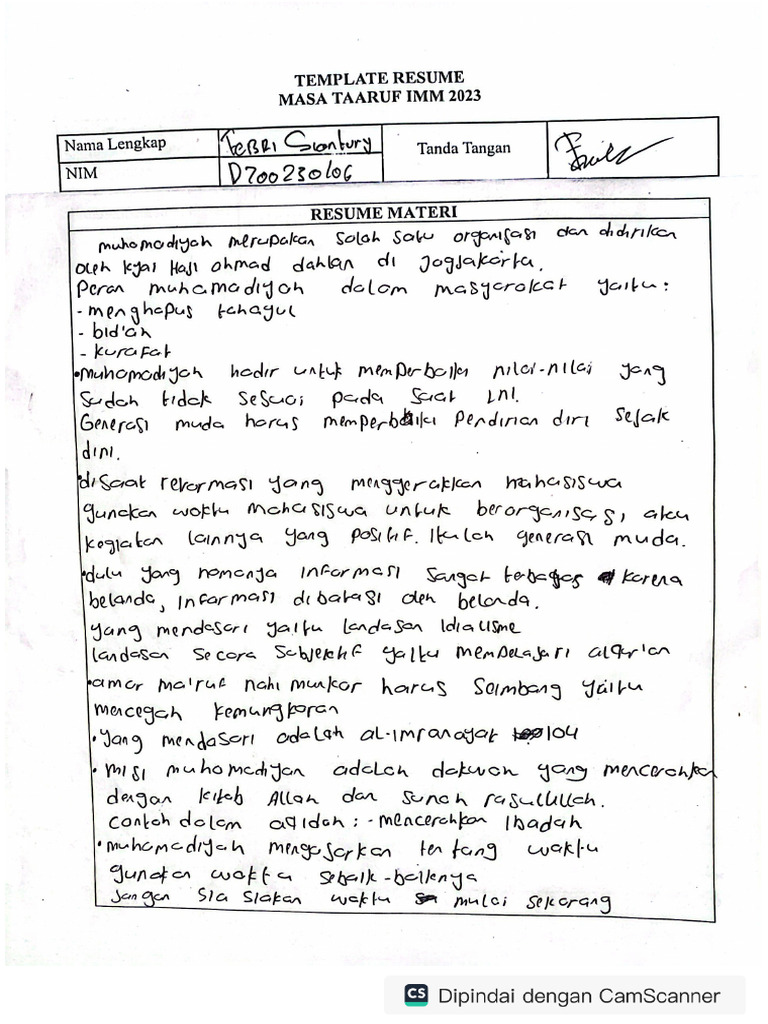 TEMPLATE RESUME
MASA TAARUF IMM 2023
Nama Lengkap
FEBRI Siantury
Tanda Tangan
NIM
D700230106
RESUME MATERI
muhamadiyah merupakan salah satu organisasi dan didirikan
oleh kyai Haji ahmad dahlan di Jogjakarta.
Peran muhamadiyah dalam masyarakat yaitu:
- menghapus tahayul
- bid'ah
- kurafat
• muhamadiyah hadir untuk memperbaiki nilai-nilai yang
sudah tidak sesuai pada saat ini.
Generasi muda harus memperbaiki Pendirian diri sejak
dini.
• disaat reformasi yang menggerakkan mahasiswa
gunakan waktu mahasiswa untuk berorganisasi, atau
kegiatan lainnya yang positif. Itulah generasi muda.
• dulu yang namanya informasi sangat terbatas karena
belanda, informasi dibatasi oleh belanda.
yang mendasari yaitu landasan idialisme
landasan secara subjektif yaitu mempelajari alqur'an
• amar ma'ruf nahi munkar harus seimbang yaitu
mencegah kemungkaran
• yang mendasari adalah al-imran ayat 104
• misi muhamadiyah adalah dakwah yang mencerahkan
dengan kitab Allah dan sunah rasulullah.
contoh dalam aqidah: - mencerahkan ibadah
• muhamadiyah mengajarkan tentang waktu
gunakan waktu sebaik-baiknya
Jangan sia siakan waktu mulai sekarang
CS Dipindai dengan CamScanner